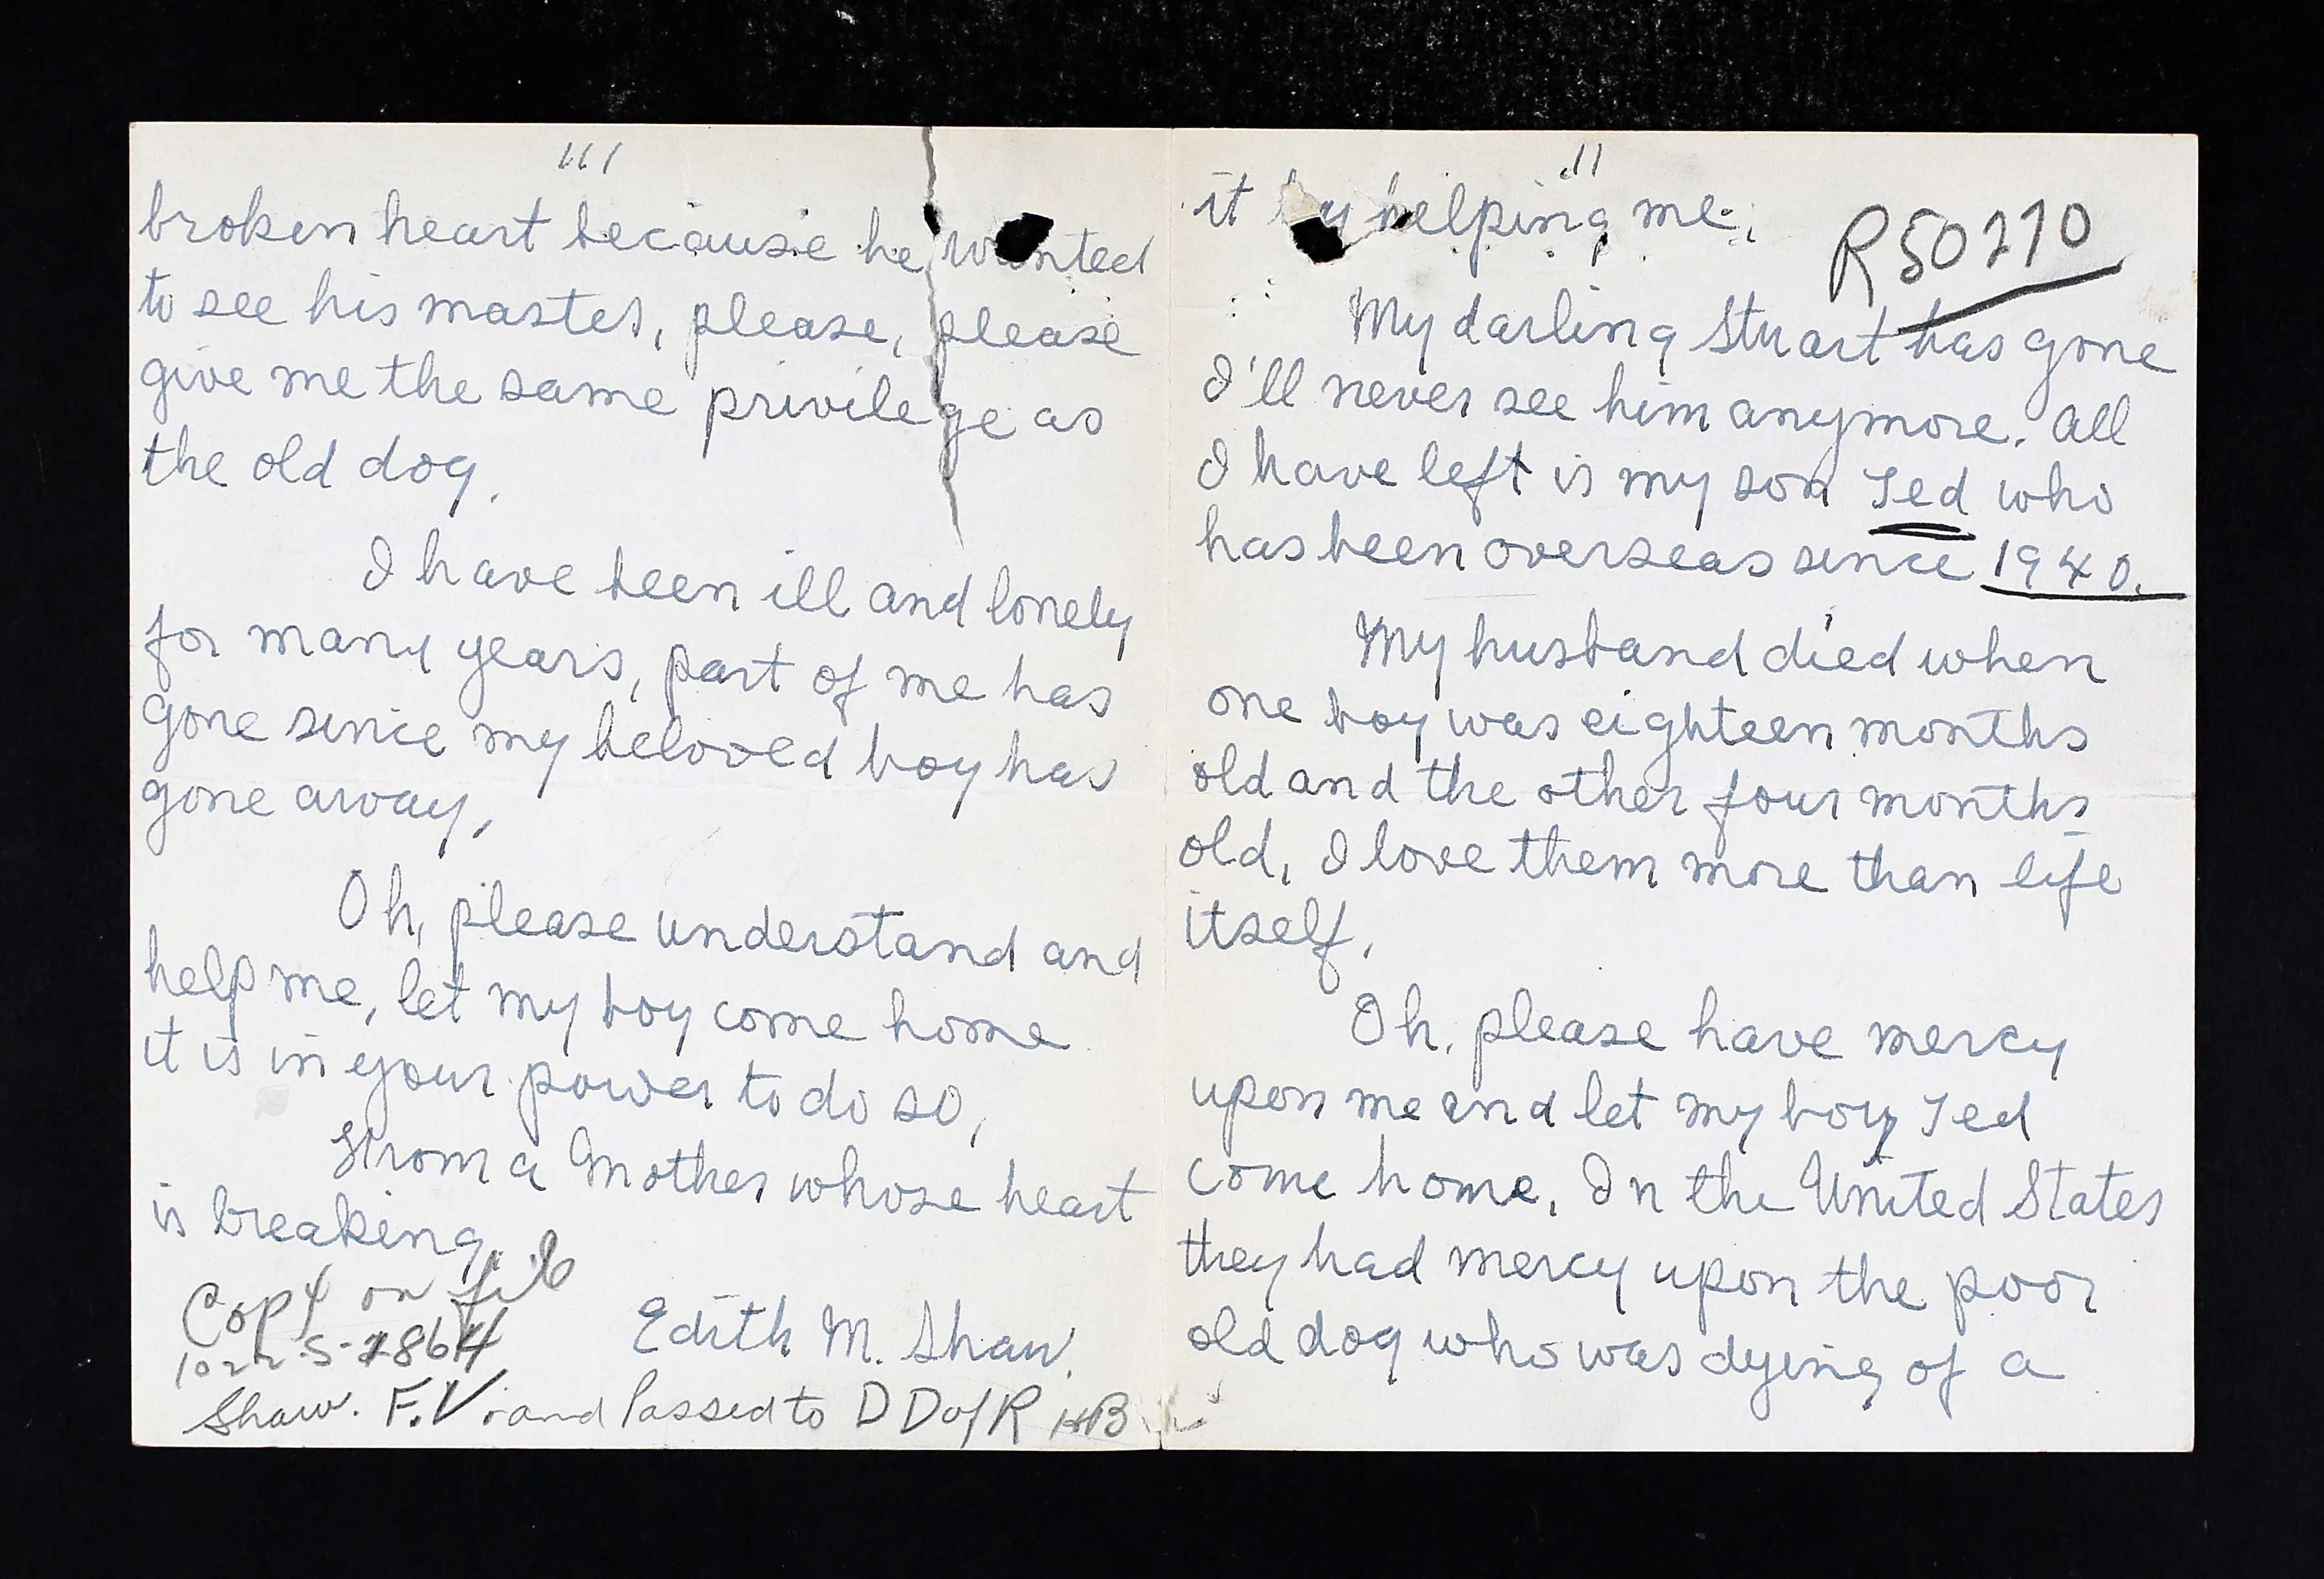 11
it by helping me.
R50270
My darling Stuart has gone
I'll never see him anymore. All
I have left is my son Ted who
has been overseas since 1940.
My husband died when
one boy was eighteen months
old and the other four months
old, I love them more than life
itself.
Oh, please have mercy
upon me and let my boy Ted
come home. In the United States
they had mercy upon the poor
old dog who was dying of a
111
broken heart because he wanted
to see his master, please, please
give me the same privilege as
the old dog.
I have been ill and lonely
for many years, part of me has
gone since my beloved boy has
gone away.
Oh, please understand and
help me, let my boy come home
it is in your power to do so,
From a Mother whose heart
is breaking.
Edith M. Shaw.
Copy on file
Shaw. F.V. and Passed to D D of R